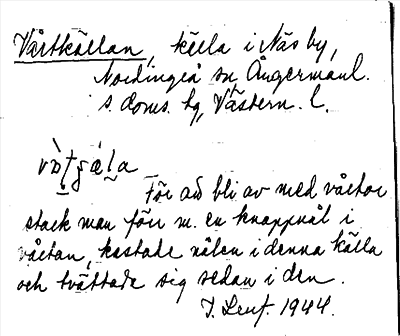 Vårtkällan, källa i Näs by,
Nordingrå sn, Ångermanl.
s. doms. hg, Västern. l.
För att bli av med vårtor
stack man förr m. en knappnål i
vårtan, kastade nålen i denna källa
och tvättade sig sedan i den.
1944.